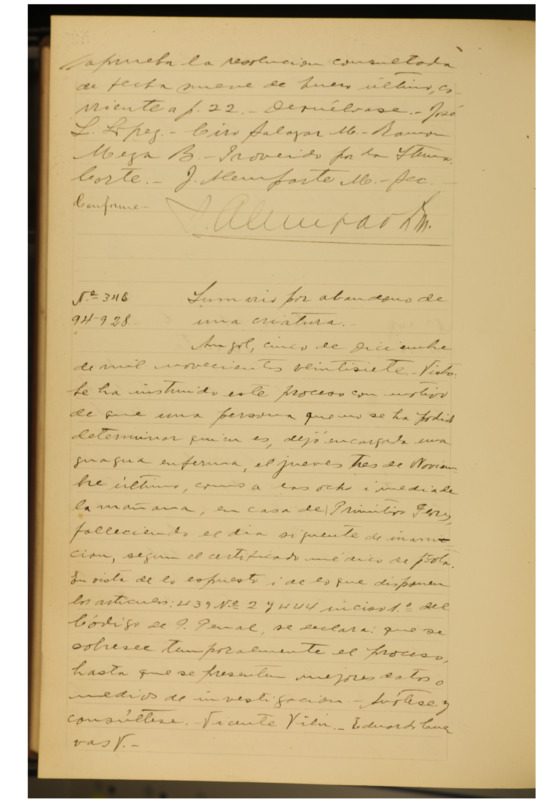 aprueba la resolucion consultada
de fecha nueve de Enero último, co-
rriente a f. 22. - Devuélvase. - José
L. López. - Ciro Salazar M. - Ramon
Meza B. - Proveido por la Iltma.
Corte. - J. Alemparte M. - Sec.
Conforme -
J. Alemparte M.
Nº 346
94-928
Sumario por abandono de
una criatura. -
Angol, cinco de Diciembre
de mil novecientos veintisiete. - Vistos:
Se ha instruido este proceso con motivo
de que una persona que no se ha podido
determinar quien es, dejó encargada una
guagua enferma, el jueves tres de Noviem
bre último, como a las ocho i media de
la mañana, en casa de Primitivo
falleciendo el dia siguiente de
cion, segun el certificado médico de
En vista de lo espuesto i de lo que disponen
los articulos: 439 Nº 2 y 444 inciso 1º del
Código de P. Penal, se declara: que se
sobresee temporalmente el proceso,
hasta que se presenten mejores datos o
medios de investigacion - Anótese y
consúltese. - Vicente - Eduardo Cue
vas V. -